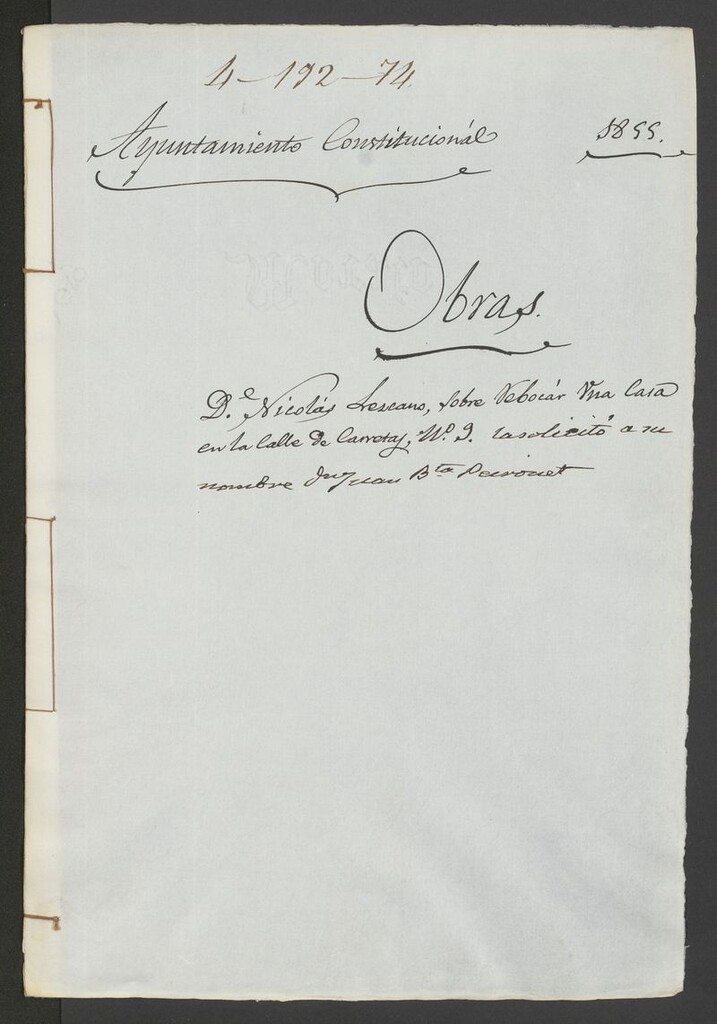 4-192-74
Ayuntamiento Constitucionál 1855.
Obras.
D.ⁿ Nicolás Lezcano, sobre Revocár Una Casa
en la Calle de Carretas, Nº. 9. la solicitó a su
nombre Dn Juan B.ta Peironet